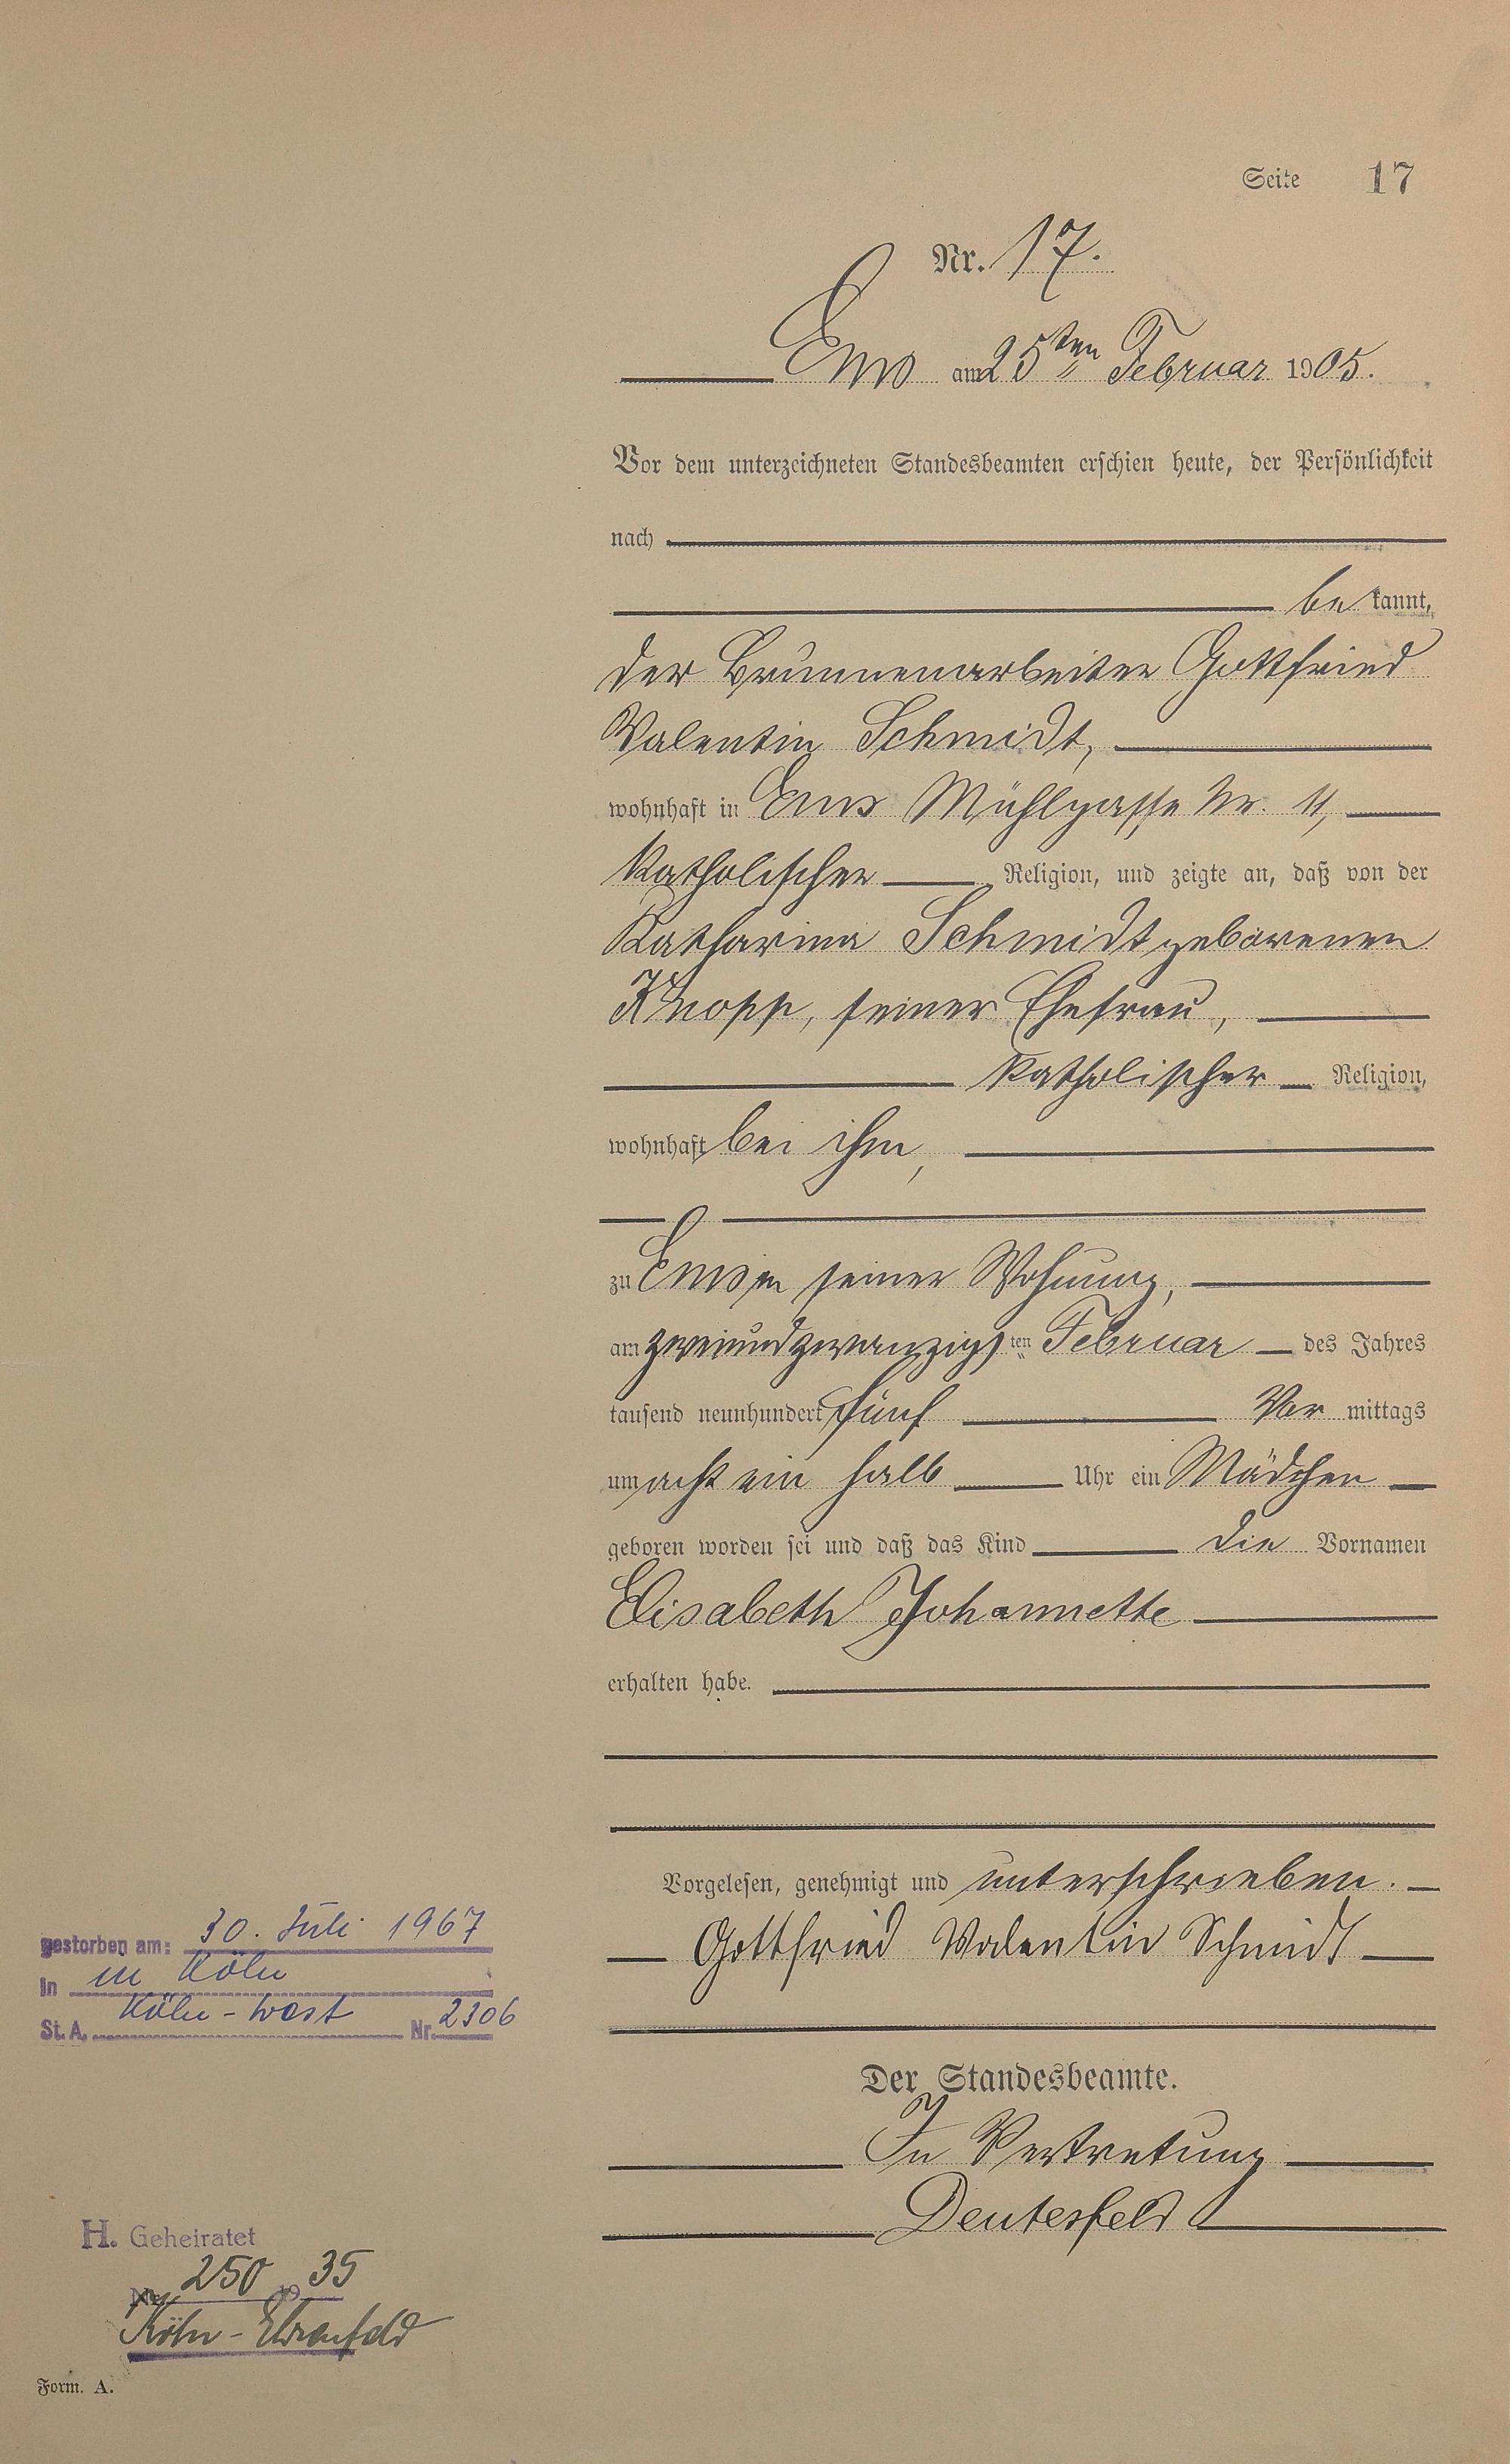 Seite 17
Nr. 17.
Ems am 25ten Februar 1905.
Vor dem unterzeichneten Standesbeamten erschien heute, der Persönlichkeit
nach
be kannt,
der Brunnenarbeiter Gottfried
Valentin Schmidt,
wohnhaft in Ems Mühlgasse Nr. 11,
katholischer Religion, und zeigte an, daß von der
Katharina Schmidt geborenen
Knopp, seiner Ehefrau,
katholischer Religion,
wohnhaft bei ihm,
zu Ems in seiner Wohnung,
am zweiundzwanzigsten Februar des Jahres
tausend neunhundert fünf Vor mittags
um acht ein halb Uhr ein Mädchen
geboren worden sei und daß das Kind die Vornamen
Elisabeth Johannette
erhalten habe.
Vorgelesen, genehmigt und unterschrieben.
Gottfried Valentin Schmidt
Der Standesbeamte.
In Vertretung
Deutesfeld
gestorben am: 30. Juli 1967
In in Köln
St. A. Köln-West Nr. 2306
H. Geheiratet
Nr. 250 1935
Köln-Ehrenfeld
Form. A.